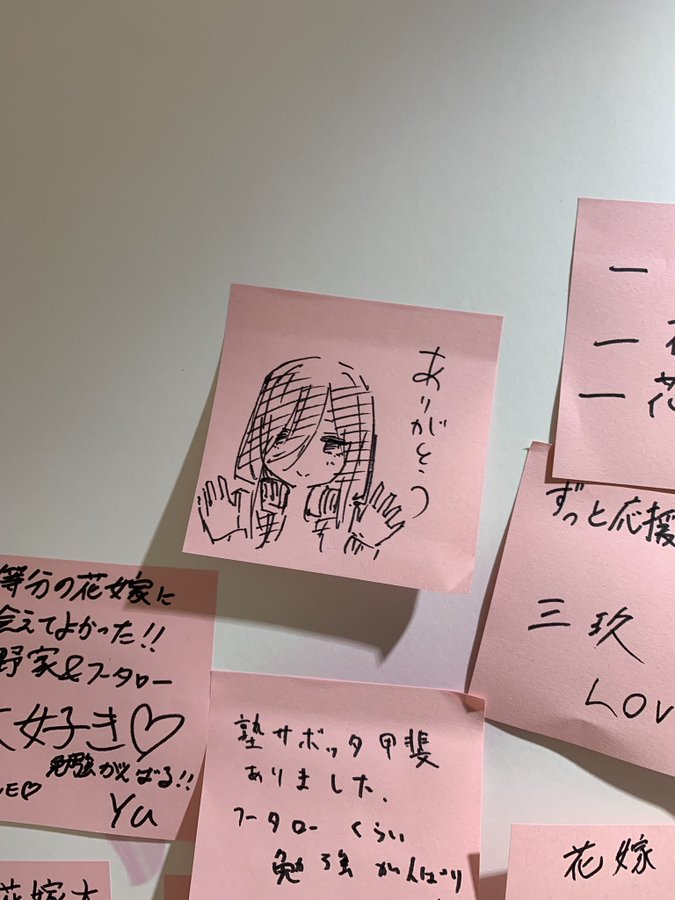 ありがとう
一
一
一花
ずっと応援
三玖
LOV
等分の花嫁に
会えてよかった!!
野家&フータロー
大好き♡
勉強がんばる!!
E♡
Yu
塾サボッタ甲斐
ありました.
フータローくらい
勉強がんばり
花嫁
花嫁大